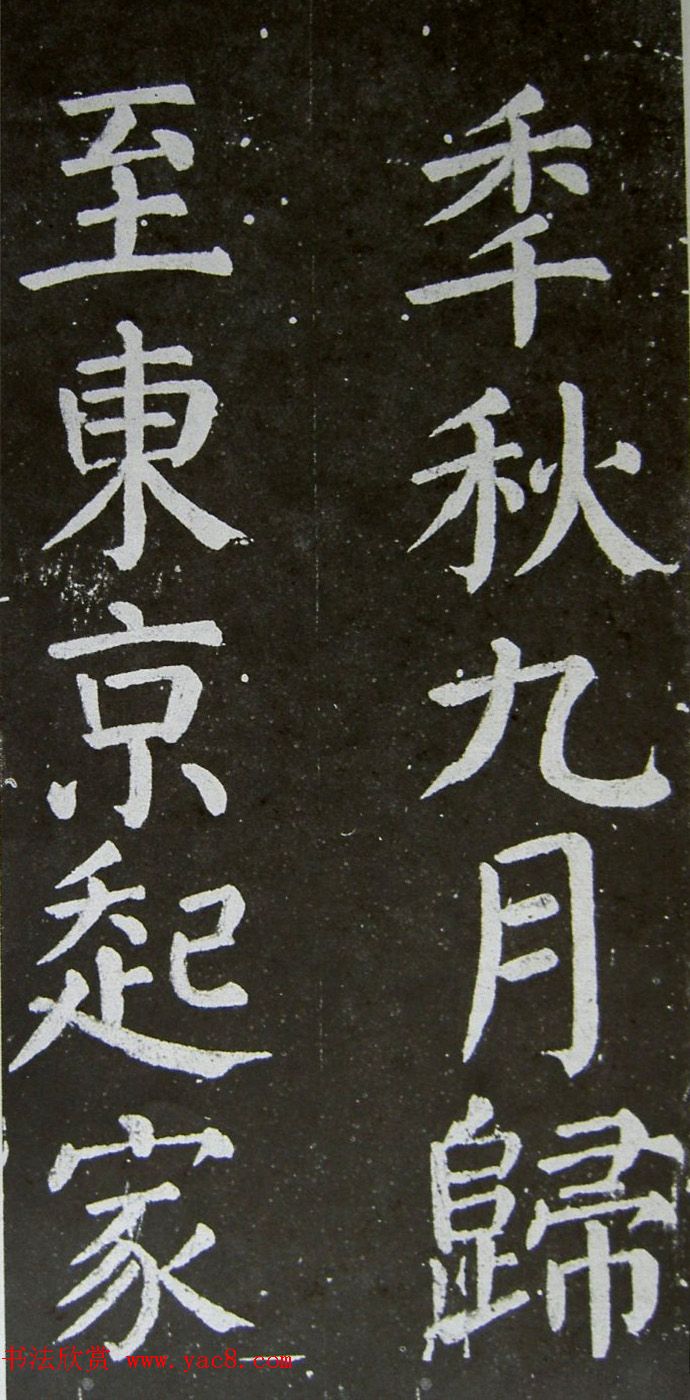 秊秋九月歸
至東京起家
书法欣赏 www.yac8.com